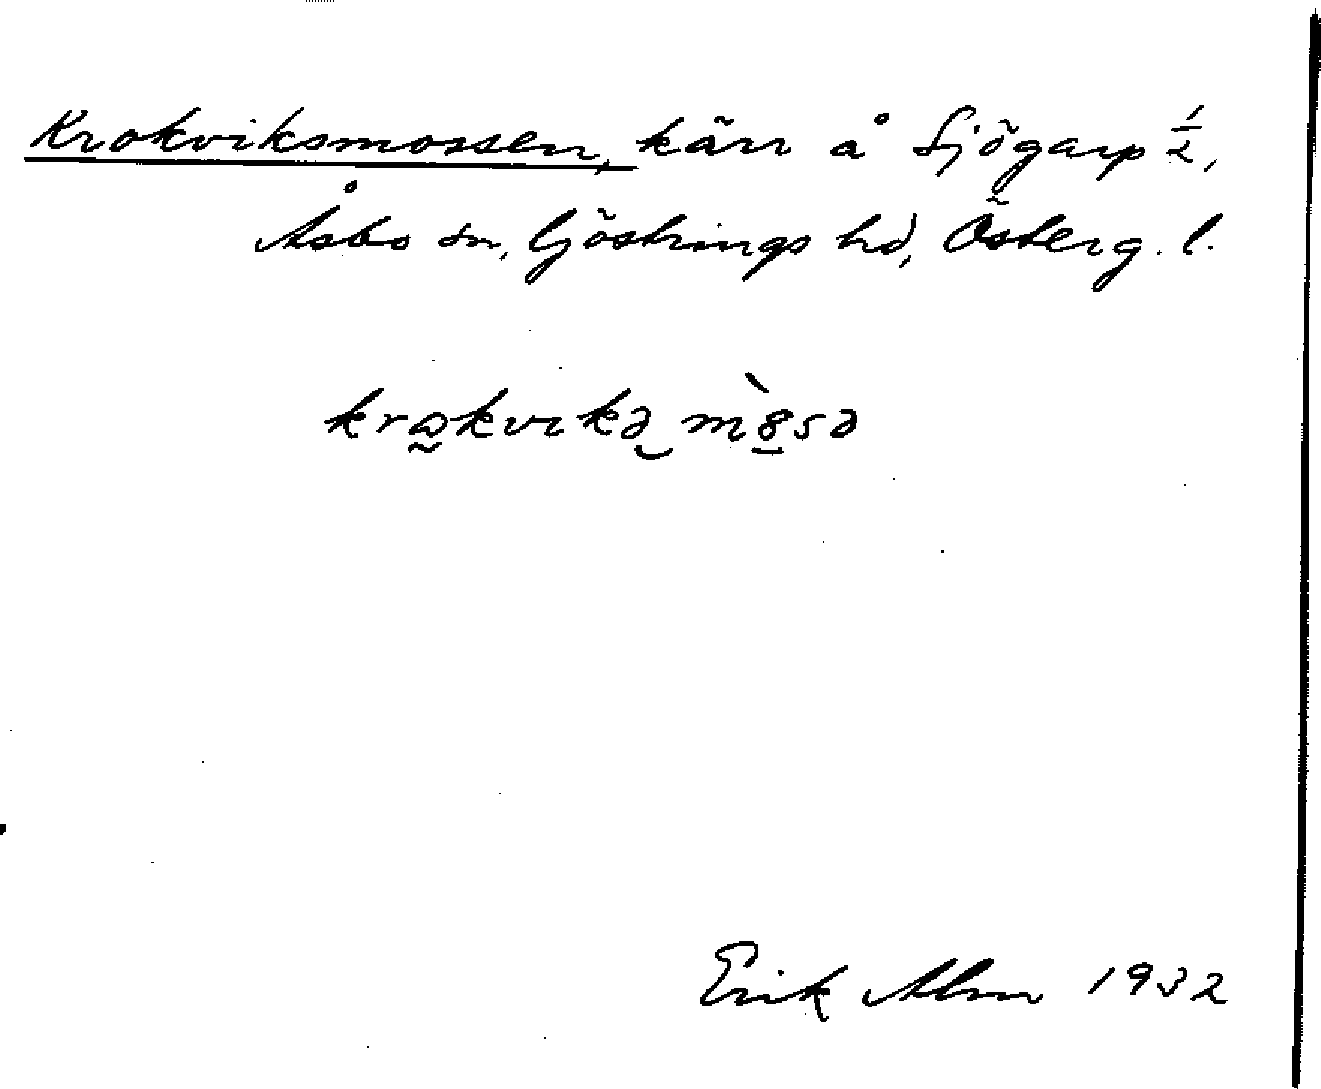 Krokviksmossen, kärr å Sjögarp 1/2,
Åsbo sn, Göstrings hd, Österg. l.
Erik Alm 1932